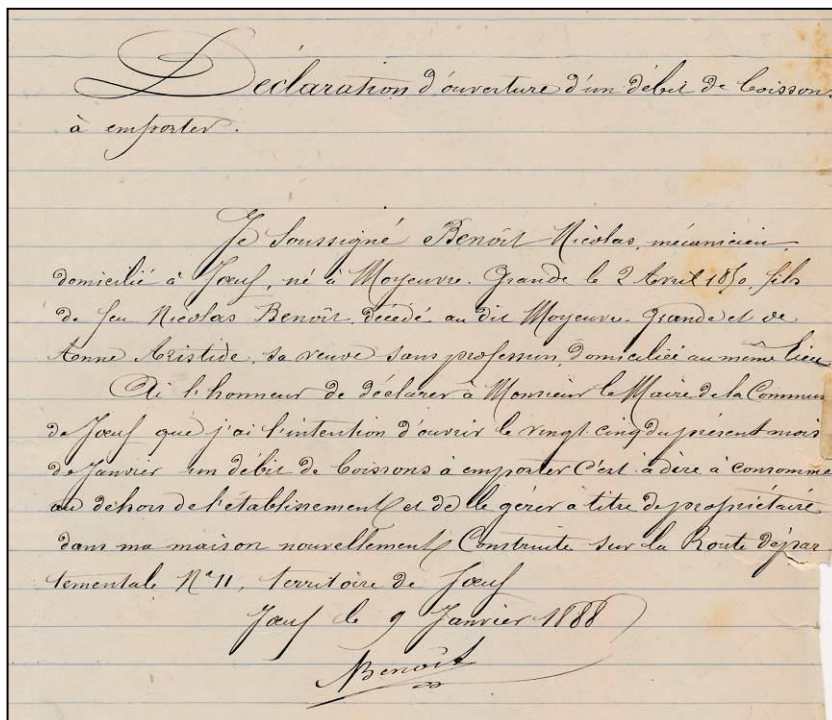 Déclaration d'ouverture d'un débit de boisson
à emporter.
Je soussigné Benoît Nicolas, mécanicien,
domicilié à Jœuf, né à Moyeuvre-Grande le 2 Avril 1850, fils
de feu Nicolas Benoît, décédé au dit Moyeuvre-Grande et de
Anne Aristide, sa veuve sans profession, domiciliée au même lieu
Ai l'honneur de déclarer à Monsieur le Maire de la Commun
de Jœuf que j'ai l'intention d'ouvrir le vingt-cinq du présent mois
de Janvier un débit de boissons à emporter c'est à dire à consomme
au dehors de l'établissement et de le gérer à titre de propriétaire
dans ma maison nouvellement Construite sur la Route dépar
tementale N° 11, territoire de Jœuf
Jœuf le 9 Janvier 1888
Benoît